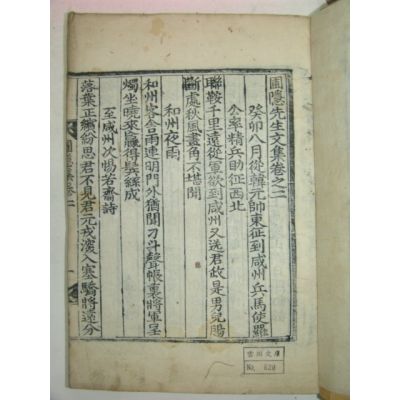 圃隱先生文集卷之二
癸卯八月從韓元帥東征到咸州兵馬使羅
公率精兵助征西北
聯鞍千里遠從軍欲到咸州又送君政是男兒腸
斷處秋風畫角不堪聞
和州夜雨
和州客舍雨連明門外猶聞刁斗聲帳裏將軍呈
燭坐曉來贏得鬢絲成
至咸州次惕若齋詩
落葉正繽紛思君不見君元戎深入塞驍將遠分
雲川文庫
No. 629